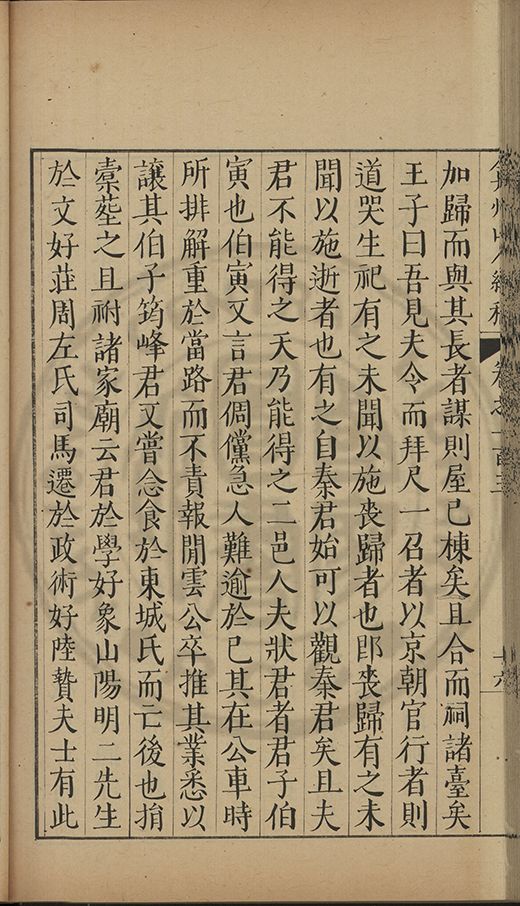 弇州山人續稿 卷之一百三 十六
加歸而與其長者謀則屋已棟矣且合而祠諸臺矣
王子曰吾見夫令而拜尺一召者以京朝官行者則
道哭生祀有之未聞以施喪歸者也卽喪歸有之未
聞以施逝者也有之自秦君始可以觀秦君矣且夫
君不能得之天乃能得之二邑人夫狀君者君子伯
寅也伯寅又言君倜儻急人難逾於己其在公車時
所排解重於當路而不責報閒雲公卒推其業悉以
讓其伯子筠峰君又嘗念食於東城氏而亡後也捐
槖塟之且祔諸家廟云君於學好象山陽明二先生
於文好莊周左氏司馬遷於政術好陸贄夫士有此